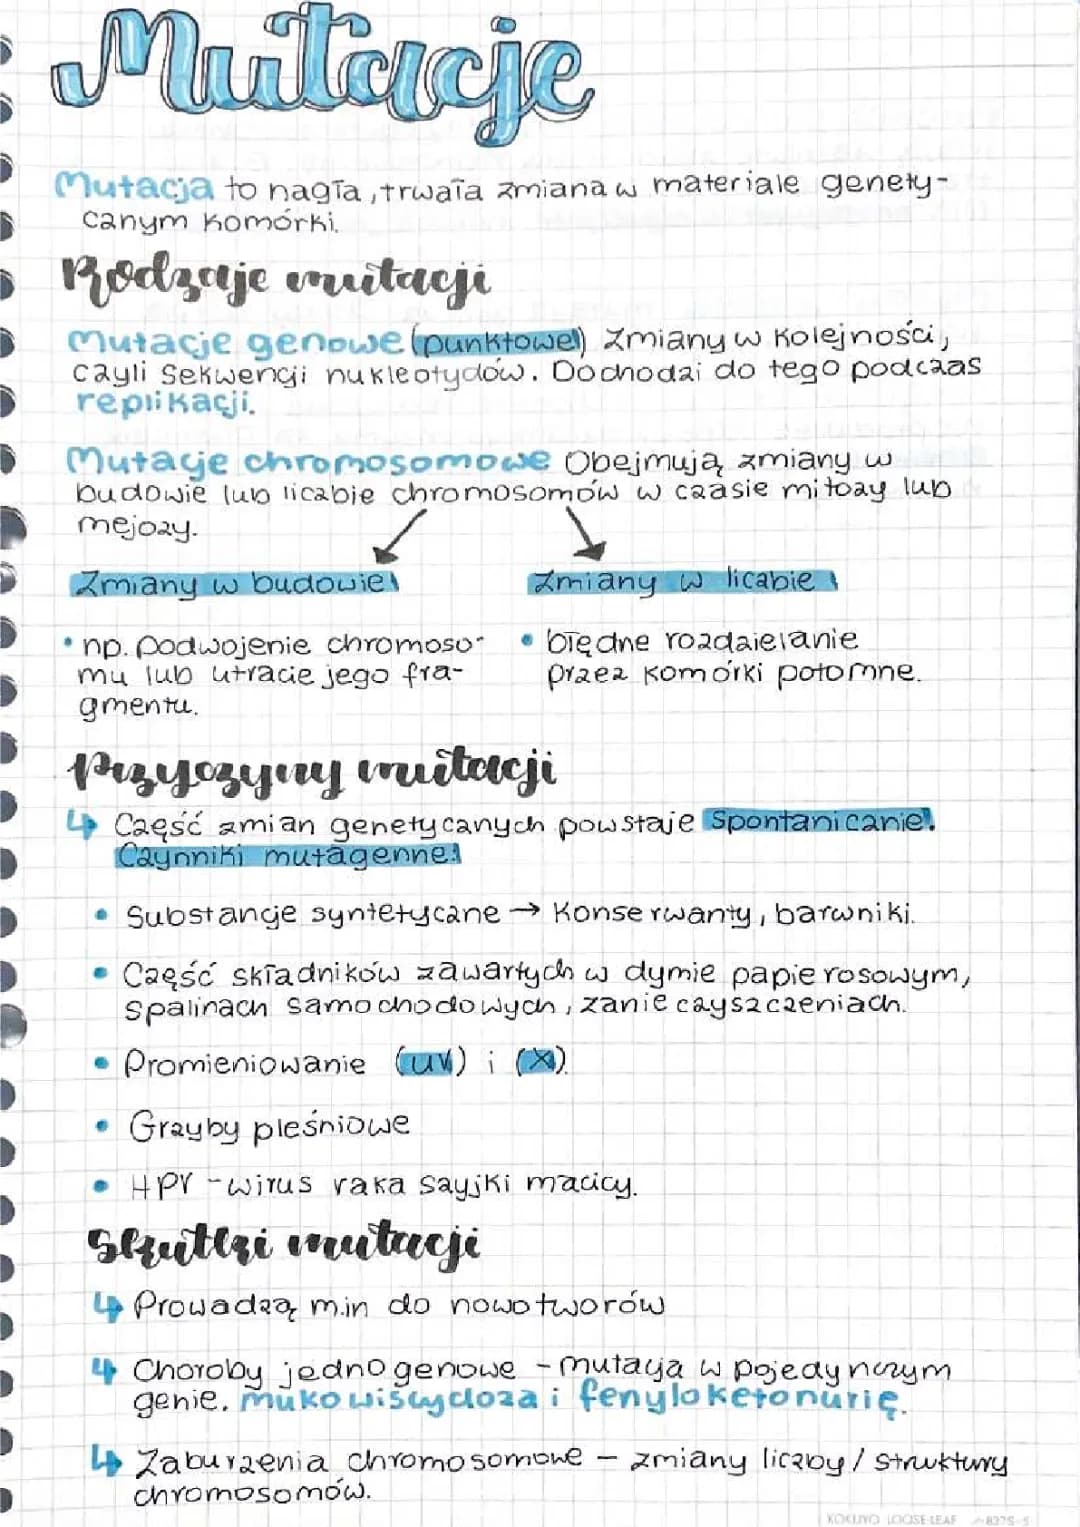 Mutacje
Mutacja to nagła, trwała zmiana w materiale genety-
cznym komórki.
Rodzaje mutacji
Mutacje genowe (punktowe) Zmiany w kolejności,
czyli sekwencji nukleotydów. Dochodzi do tego podczas
replikacji.
Mutacje chromosomowe Obejmują zmiany w
budowie lub liczbie chromosomów w czasie mitozy lub
mejozy.
Zmiany w budowie
Zmiany w liczbie
• np. podwojenie chromoso-
mu lub utracie jego fra-
gmentu.
• błędne rozdzielanie
przez komórki potomne.
Przyczyny mutacji
↳ Część zmian genetycznych powstaje spontanicznie.
Czynniki mutagenne:
• Substancje syntetyczne → konserwanty, barwniki.
• Część składników zawartych w dymie papierosowym,
spalinach samochodowych, zanieczyszczeniach.
• Promieniowanie (UV) i (X).
• Grzyby pleśniowe
• HPV - wirus raka szyjki macicy.
Skutki mutacji
↳ Prowadzą m.in do nowotworów
↳ Choroby jednogenowe - mutacja w pojedynczym
genie. mukowiscydoza i fenyloketonurię.
↳ Zaburzenia chromosomowe - zmiany liczby / struktury
chromosomów.
KOKUYO LOOSE-LEAF